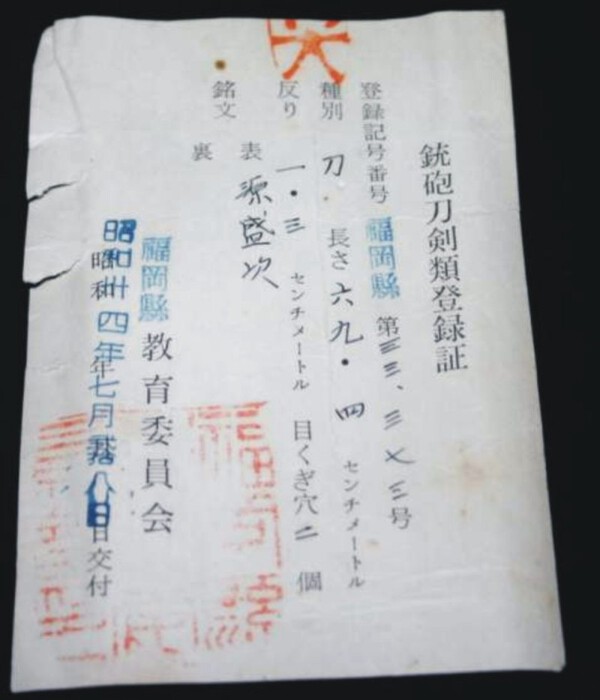 銃砲刀剣類登録証
登録記号番号 福岡縣 第三三、三七三号
種別 刀 長さ 六九・四 センチメートル
反り 一・三 センチメートル 目くぎ穴 二 個
銘文 表 源盛次
裏
福岡縣教育委員会
昭和 昭和卅四年七月 八日交付